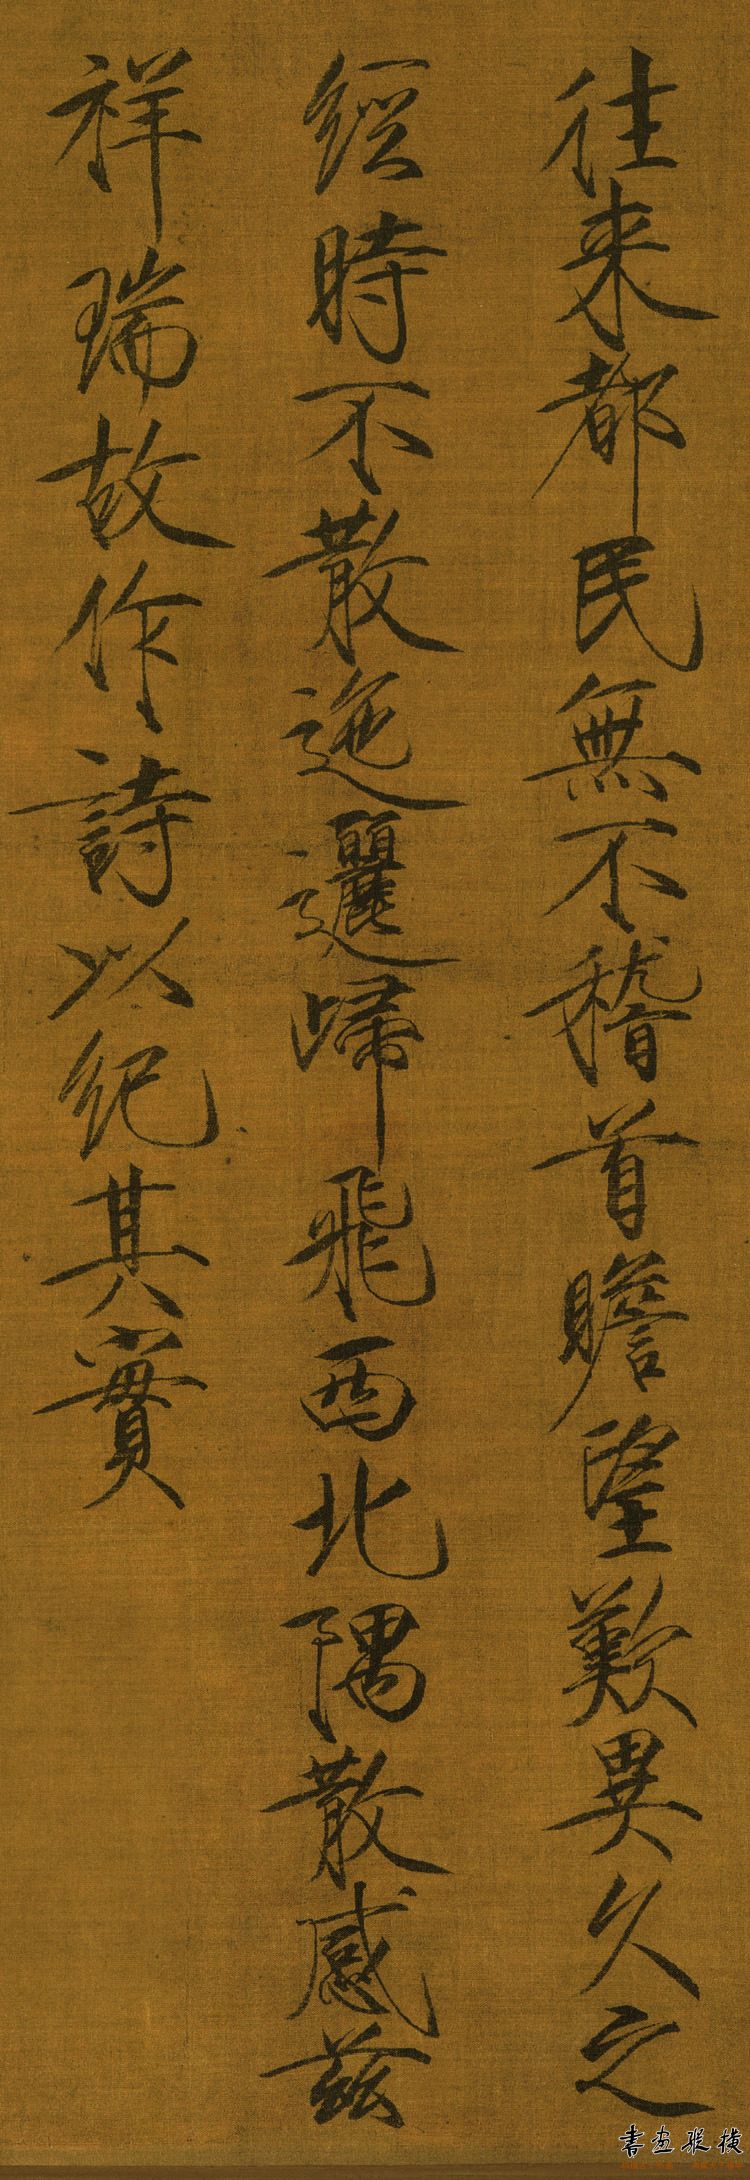 往来都民無不稽首瞻望歎異久之
經時不散迤邐歸飛西北隅散感兹
祥瑞故作詩以紀其實
書画纵横